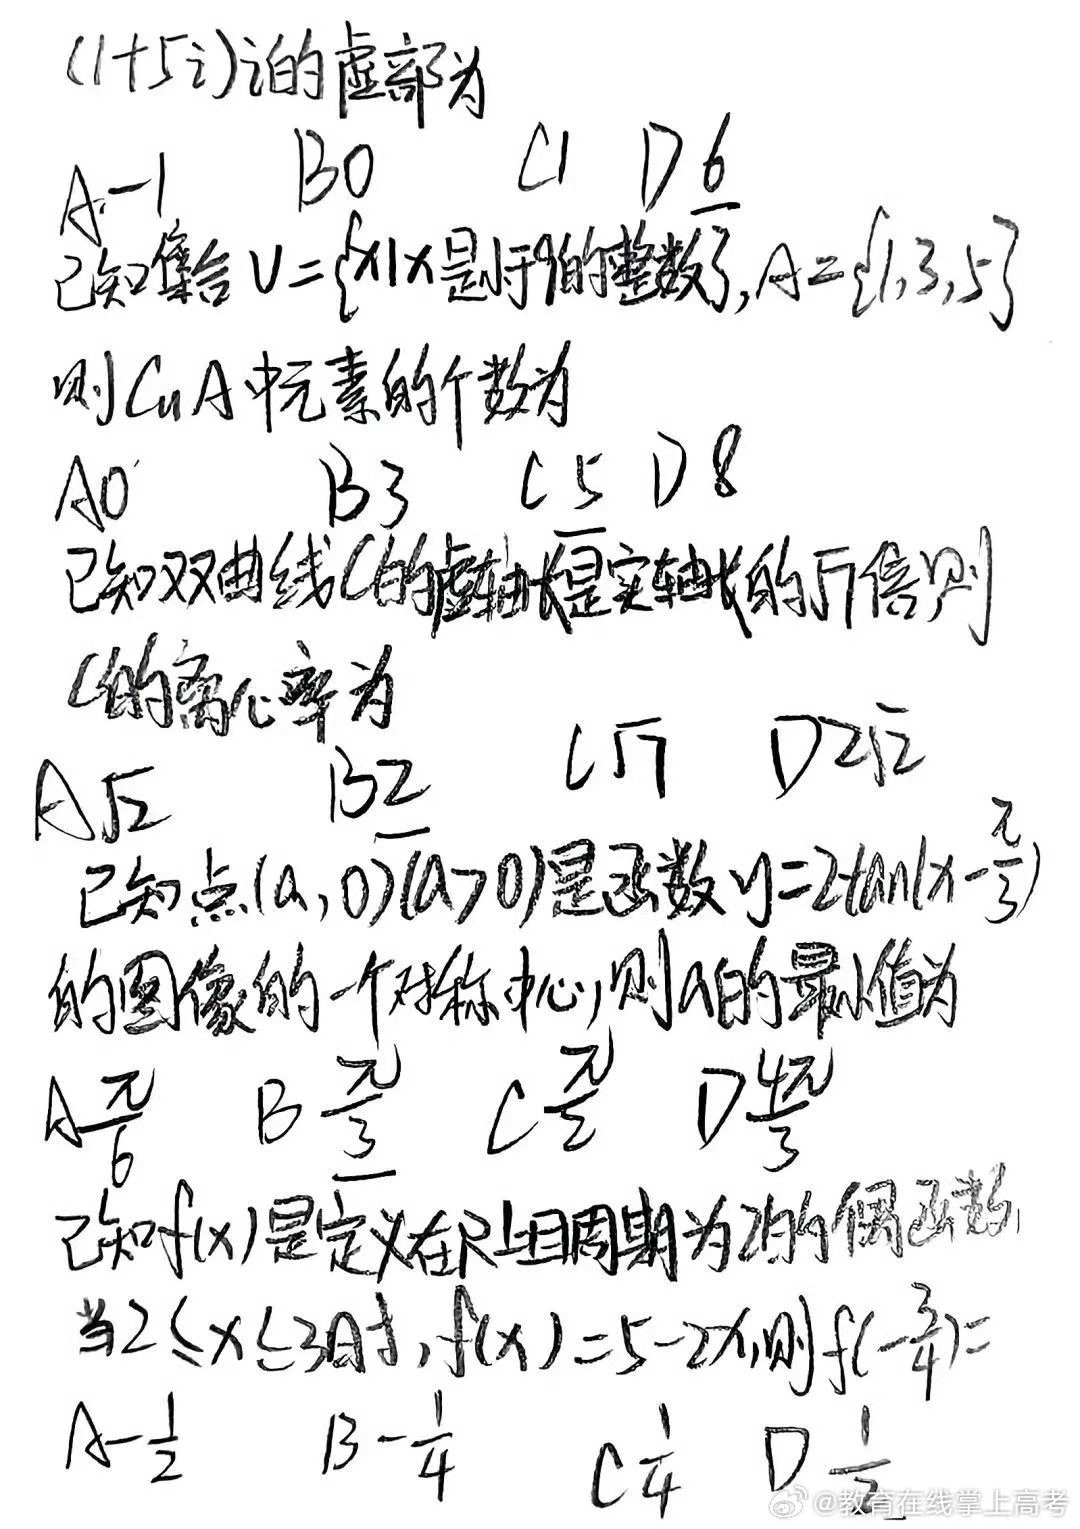 (1+5i)i的虚部为
A.-1 B0 C1 D6
已知集合U={x|x是小于9的整数},A={1,3,5}
则CuA中元素的个数为
A0 B3 C5 D8
已知双曲线C的虚轴长是实轴长的√7倍则
C的离心率为
A√2 B2 C√7 D2√2
已知点(a,0)(a>0)是函数y=2tan(x-π/3)
的图像的一个对称中心,则a的最小值为
Aπ/6 Bπ/3 Cπ/2 D4π/3
已知f(x)是定义在R上且周期为2的偶函数
当2≤x≤3时,f(x)=5-2x,则f(-3/4)=
A-1/2 B-1/4 C1/4 D1/2
@教育在线掌上高考